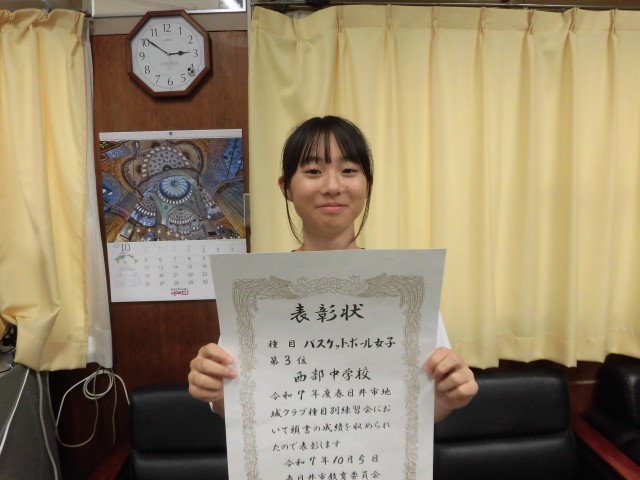 10
表彰状
種目 バスケットボール女子
第3位
西部中学校
令和7年度春日井市地
域クラブ種目別練習会にお
いて頭書の成績を収められ
たので表彰します
令和7年10月5日
春日井市教育委員会